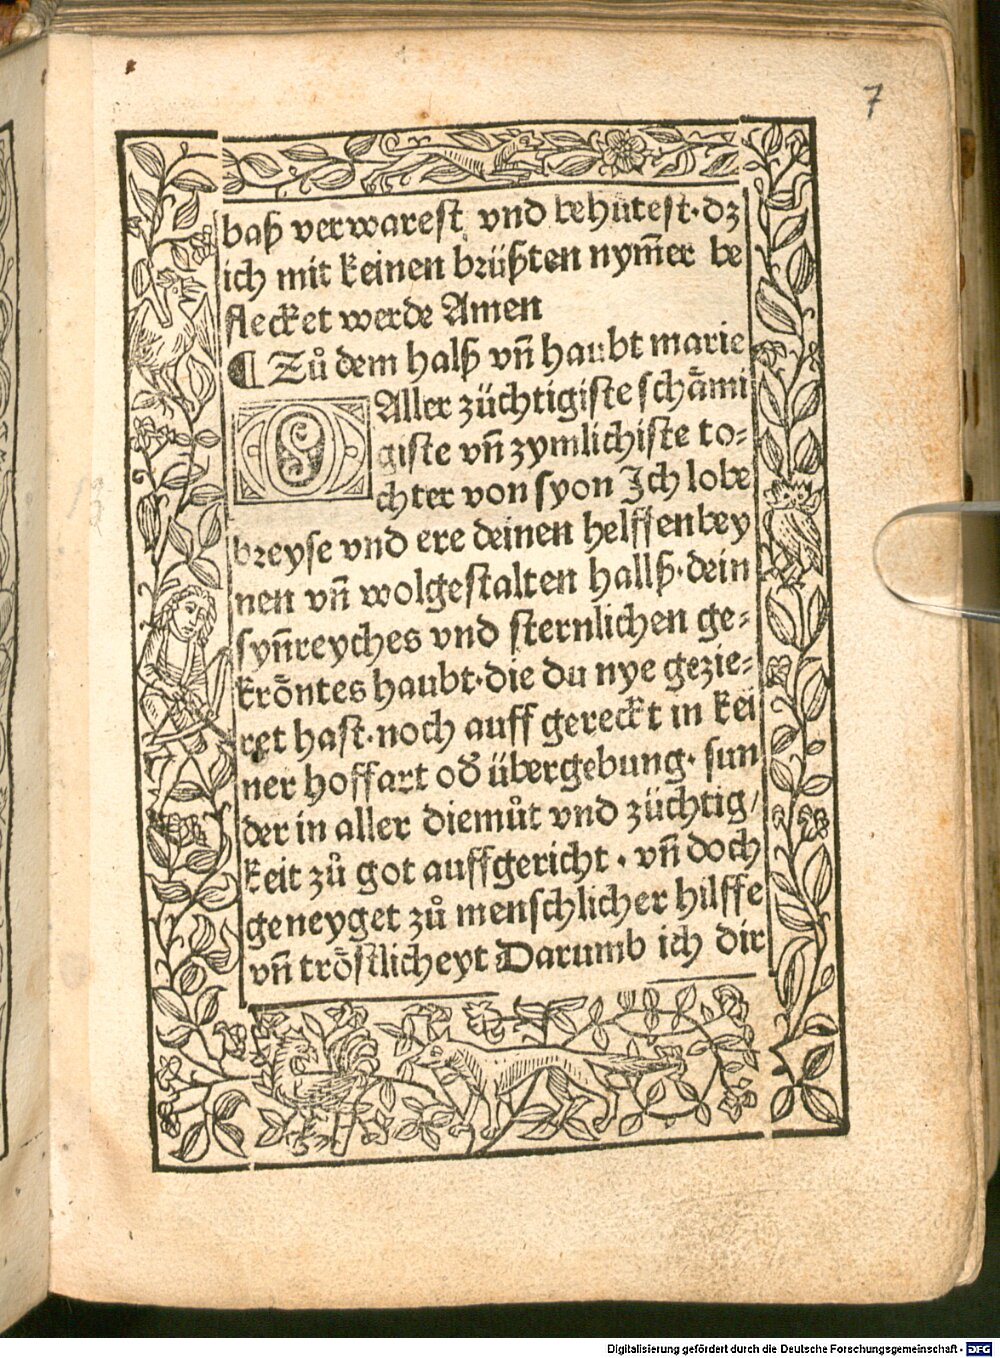 7
baß verwarest vnd behütest·dz
ich mit keinen brüßten nym̄er be
flecket werde Amen
¶ Zů dem halß vn̄ haubt marie
O Aller züchtigiste schämi
giste vn̄ zymlichiste to⸗
chter von syon Ich lobe
breyse vnd ere deinen helffenbey
nen vn̄ wolgestalten hallß·dein
syn̄reyches vnd sternlichen ge⸗
kröntes haubt·die du nye gezie⸗
ret hast·noch auff gereckt in kei
ner hoffart od̕ übergebung· sun
der in aller diemůt vnd züchtig/
keit zů got auffgericht · vn̄ doch
geneyget zů menschlicher hilffe
vn̄ tröstlicheyt Darumb ich dir
Digitalisierung gefördert durch die Deutsche Forschungsgemeinschaft - DFG